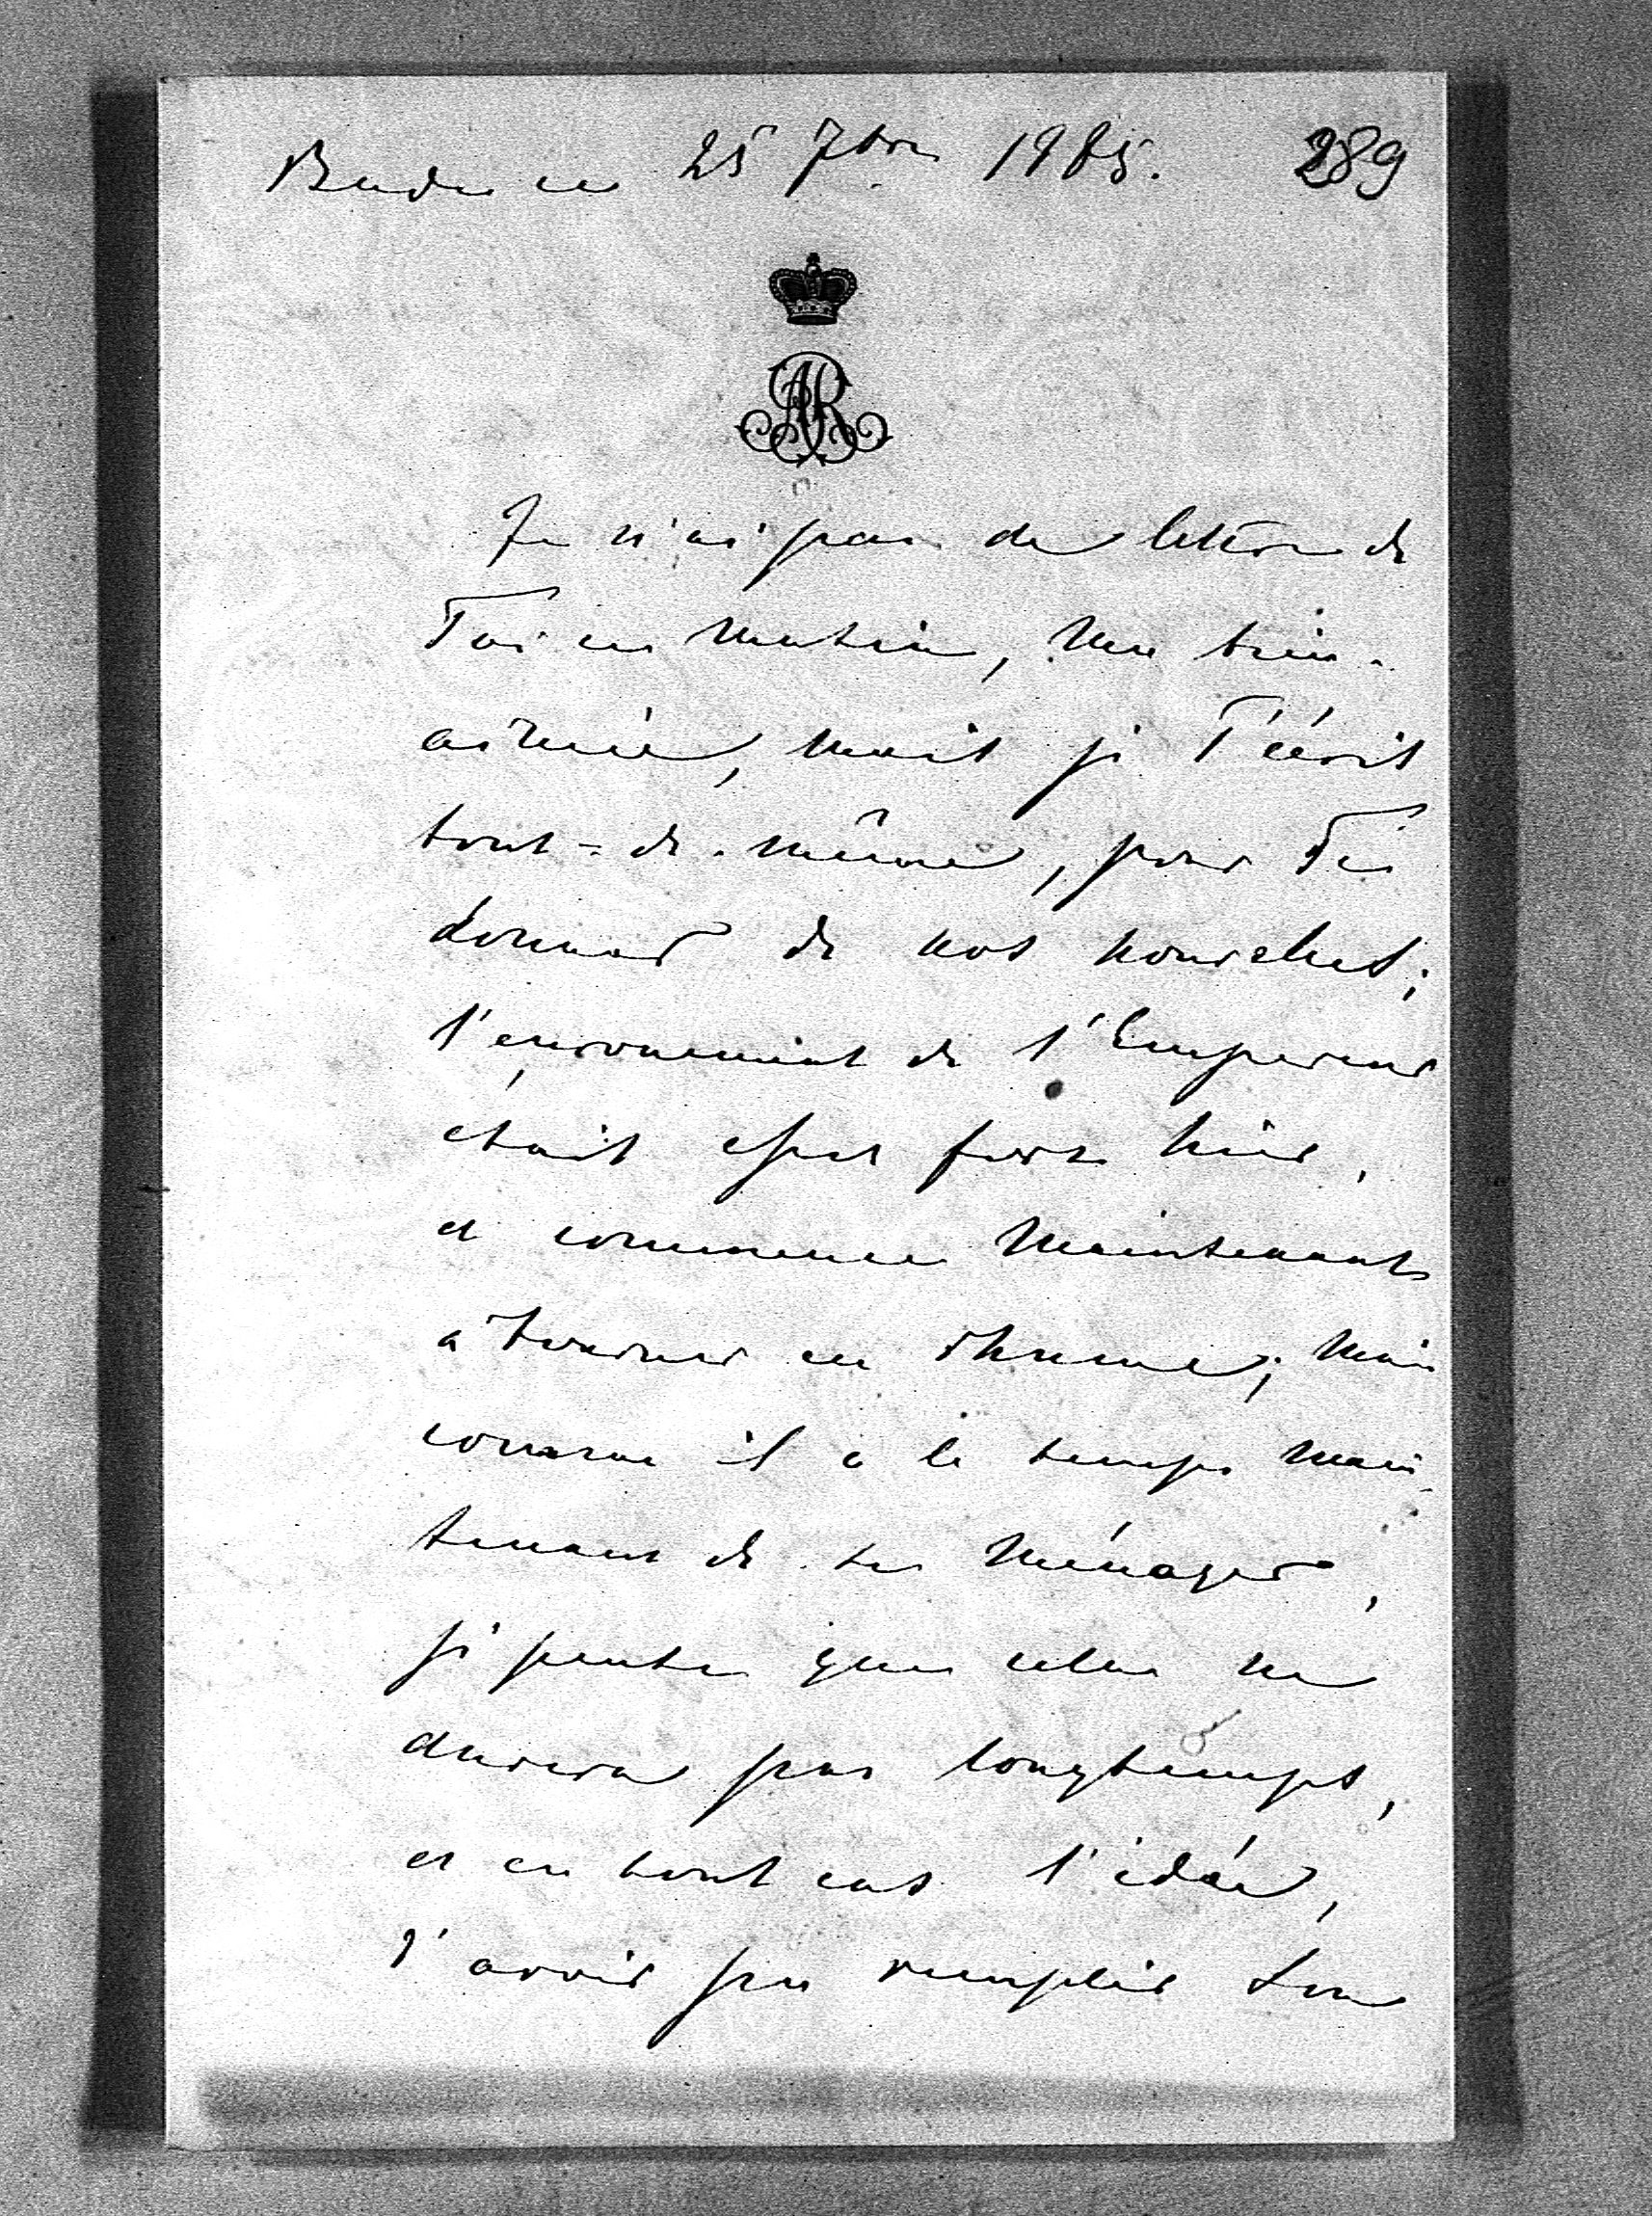 Bude ce 25 7bre 1885. 289
AR
Je n'ai pas de lettre de
Toi ce matin, ma bien-
aimée, mais je T'écris
tout-de-même, pour Te
donner de nos nouvelles;
l'enrouement de l'Empereur
était assez fort hier,
et commence maintenant
à tourner en rhume; mais
comme il a le temps main-
tenant de se ménager,
je pense que cela ne
durera pas longtemps,
et en tout cas l'idée,
d'avoir pu remplir son